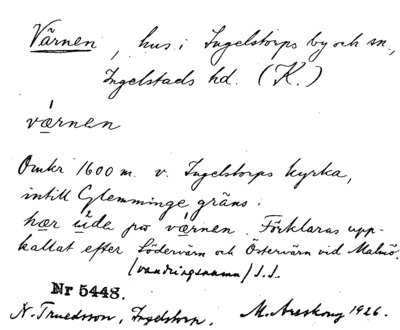 Värnen, hus i Ingelstorps by och sn.,
Ingelstads hd. (K.)
værnen
Omkr 1600 m. v. Ingelstorps kyrka,
intill Glemminge gräns.
hær ude på værnen. Förklaras upp-
kallat efter Södervärn och Östervärn vid Malmö.
/vandringsnamn/ I.I.
Nr 5448.
N. Truedsson, Ingelstorp. M. Areskoug 1926.